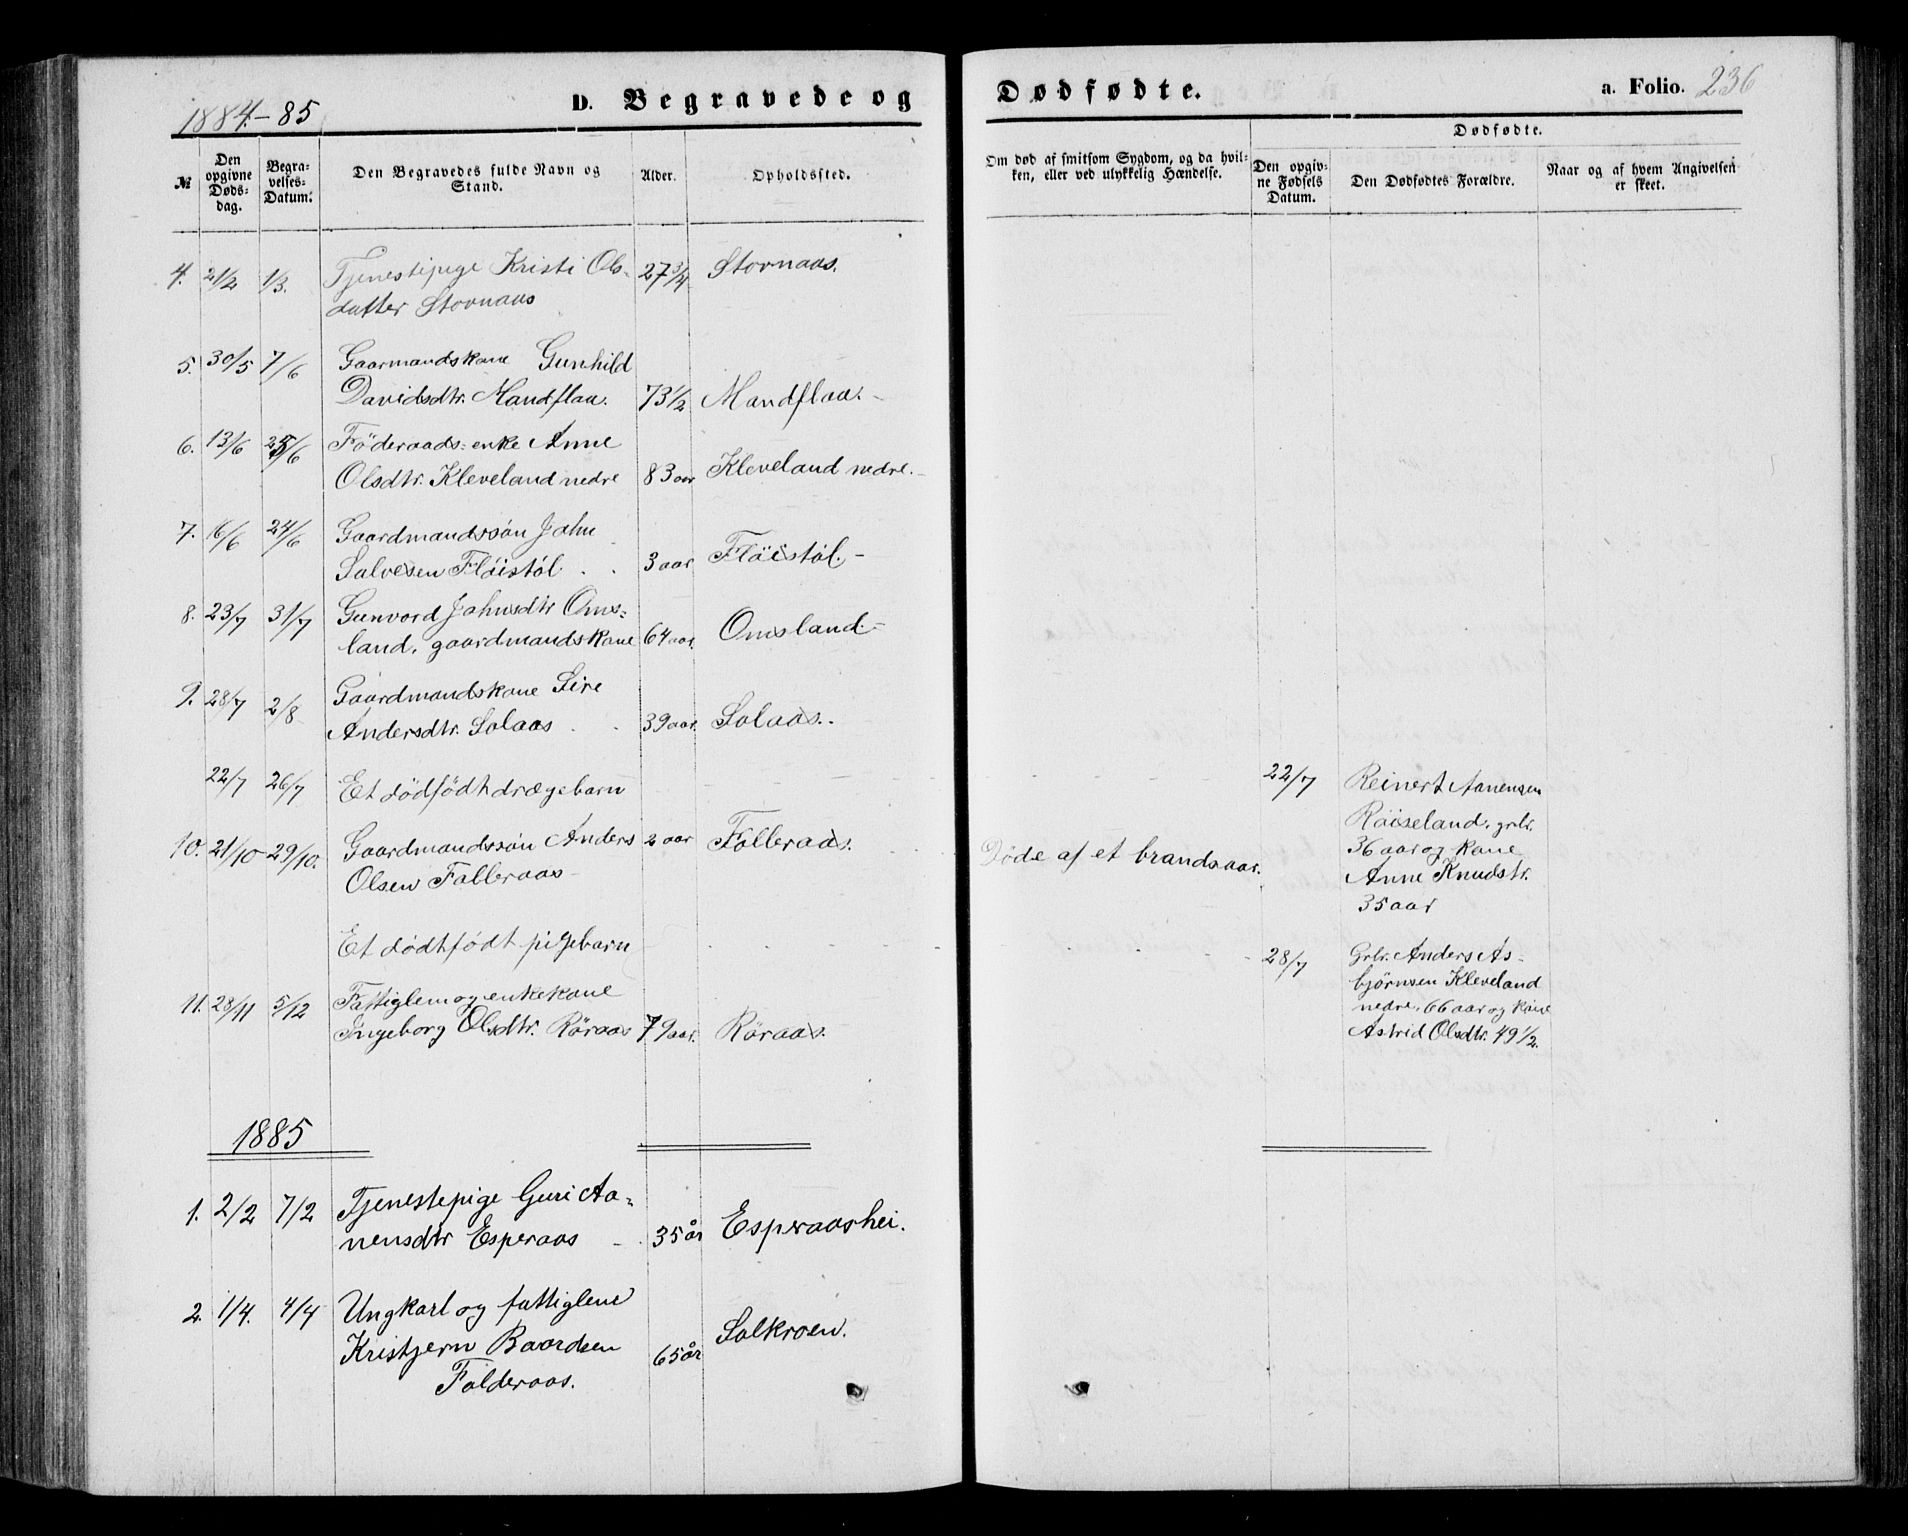 1884.-85
D. Begravede og Dødfødte.
a. Folio. 236
№
Den opgivne Døds-dag.
Begra-velses-Datum.
Den Begravedes fulde Navn og Stand.
Alder.
Opholdssted.
Om død af smitsom Sygdom, og da hvil-ken, eller ved ulykkelig Hændelse.
Dødfødte.
Den opgiv-ne Fødsels Datum.
Den Dødfødtes Forældre.
Naar og af hvem Angivelsen er skeet.
4. 21/2 1/3. Tjenestepige Kristi Ols- 27 3/4 Stovnaas.
datter Stovnaas
5. 30/5 7/6 Gaarmandskone Gunhild
Davidsdtr. Mandflaa. 73 1/2 Mandflaa.-
6. 13/6 /6 Föderaads-enke Anne
Olsdtr. Kleveland nedre 83 aar Kleveland nedre.-
7. 16/6 24/6 Gaardmandssön John
Salvesen Flöistöl . . 3 aar Flöistöl.-
8. 23/7 31/7 Gunvord Johnsdtr Oms=
land, gaardmandskone 64 aar. Omsland.-
9. 28/7 2/8 Gaardmandskone Sire
Andersdtr. Solaas . . 39 aar. Solaas.
22/7 26/7 Et dödfödt drægebarn
22/7 Reinert Aanensen
Röiseland, grbr.
36 aar og kone
Anne Knudstr.
35 aar
10. 21/10 29/10. Gaardmandssön Anders 2 aar Folleraas.
Olsen Folleraas-
Döde af et brandsaar.
Et dödtfödt pigebarn
28/7 Grbr. Anders As-
bjørnsen Kleveland
nedre, 66 aar og kone
Astrid Olsdtr. 49 1/2.
11. 28/11 5/12 Fattiglem og enkekone
Ingeborg Olsdtr. Röraas 79 aar. Röraas.
1885
1. 2/2 7/2 Tjenestepige Guri Aa=
nensdtr Esperaas - . 35 år Esperaashei.
2. 1/4. 4/4 Ungkarl og fattiglem
Kristjern Baardsen 65 år Solkroen.
Folderaas.